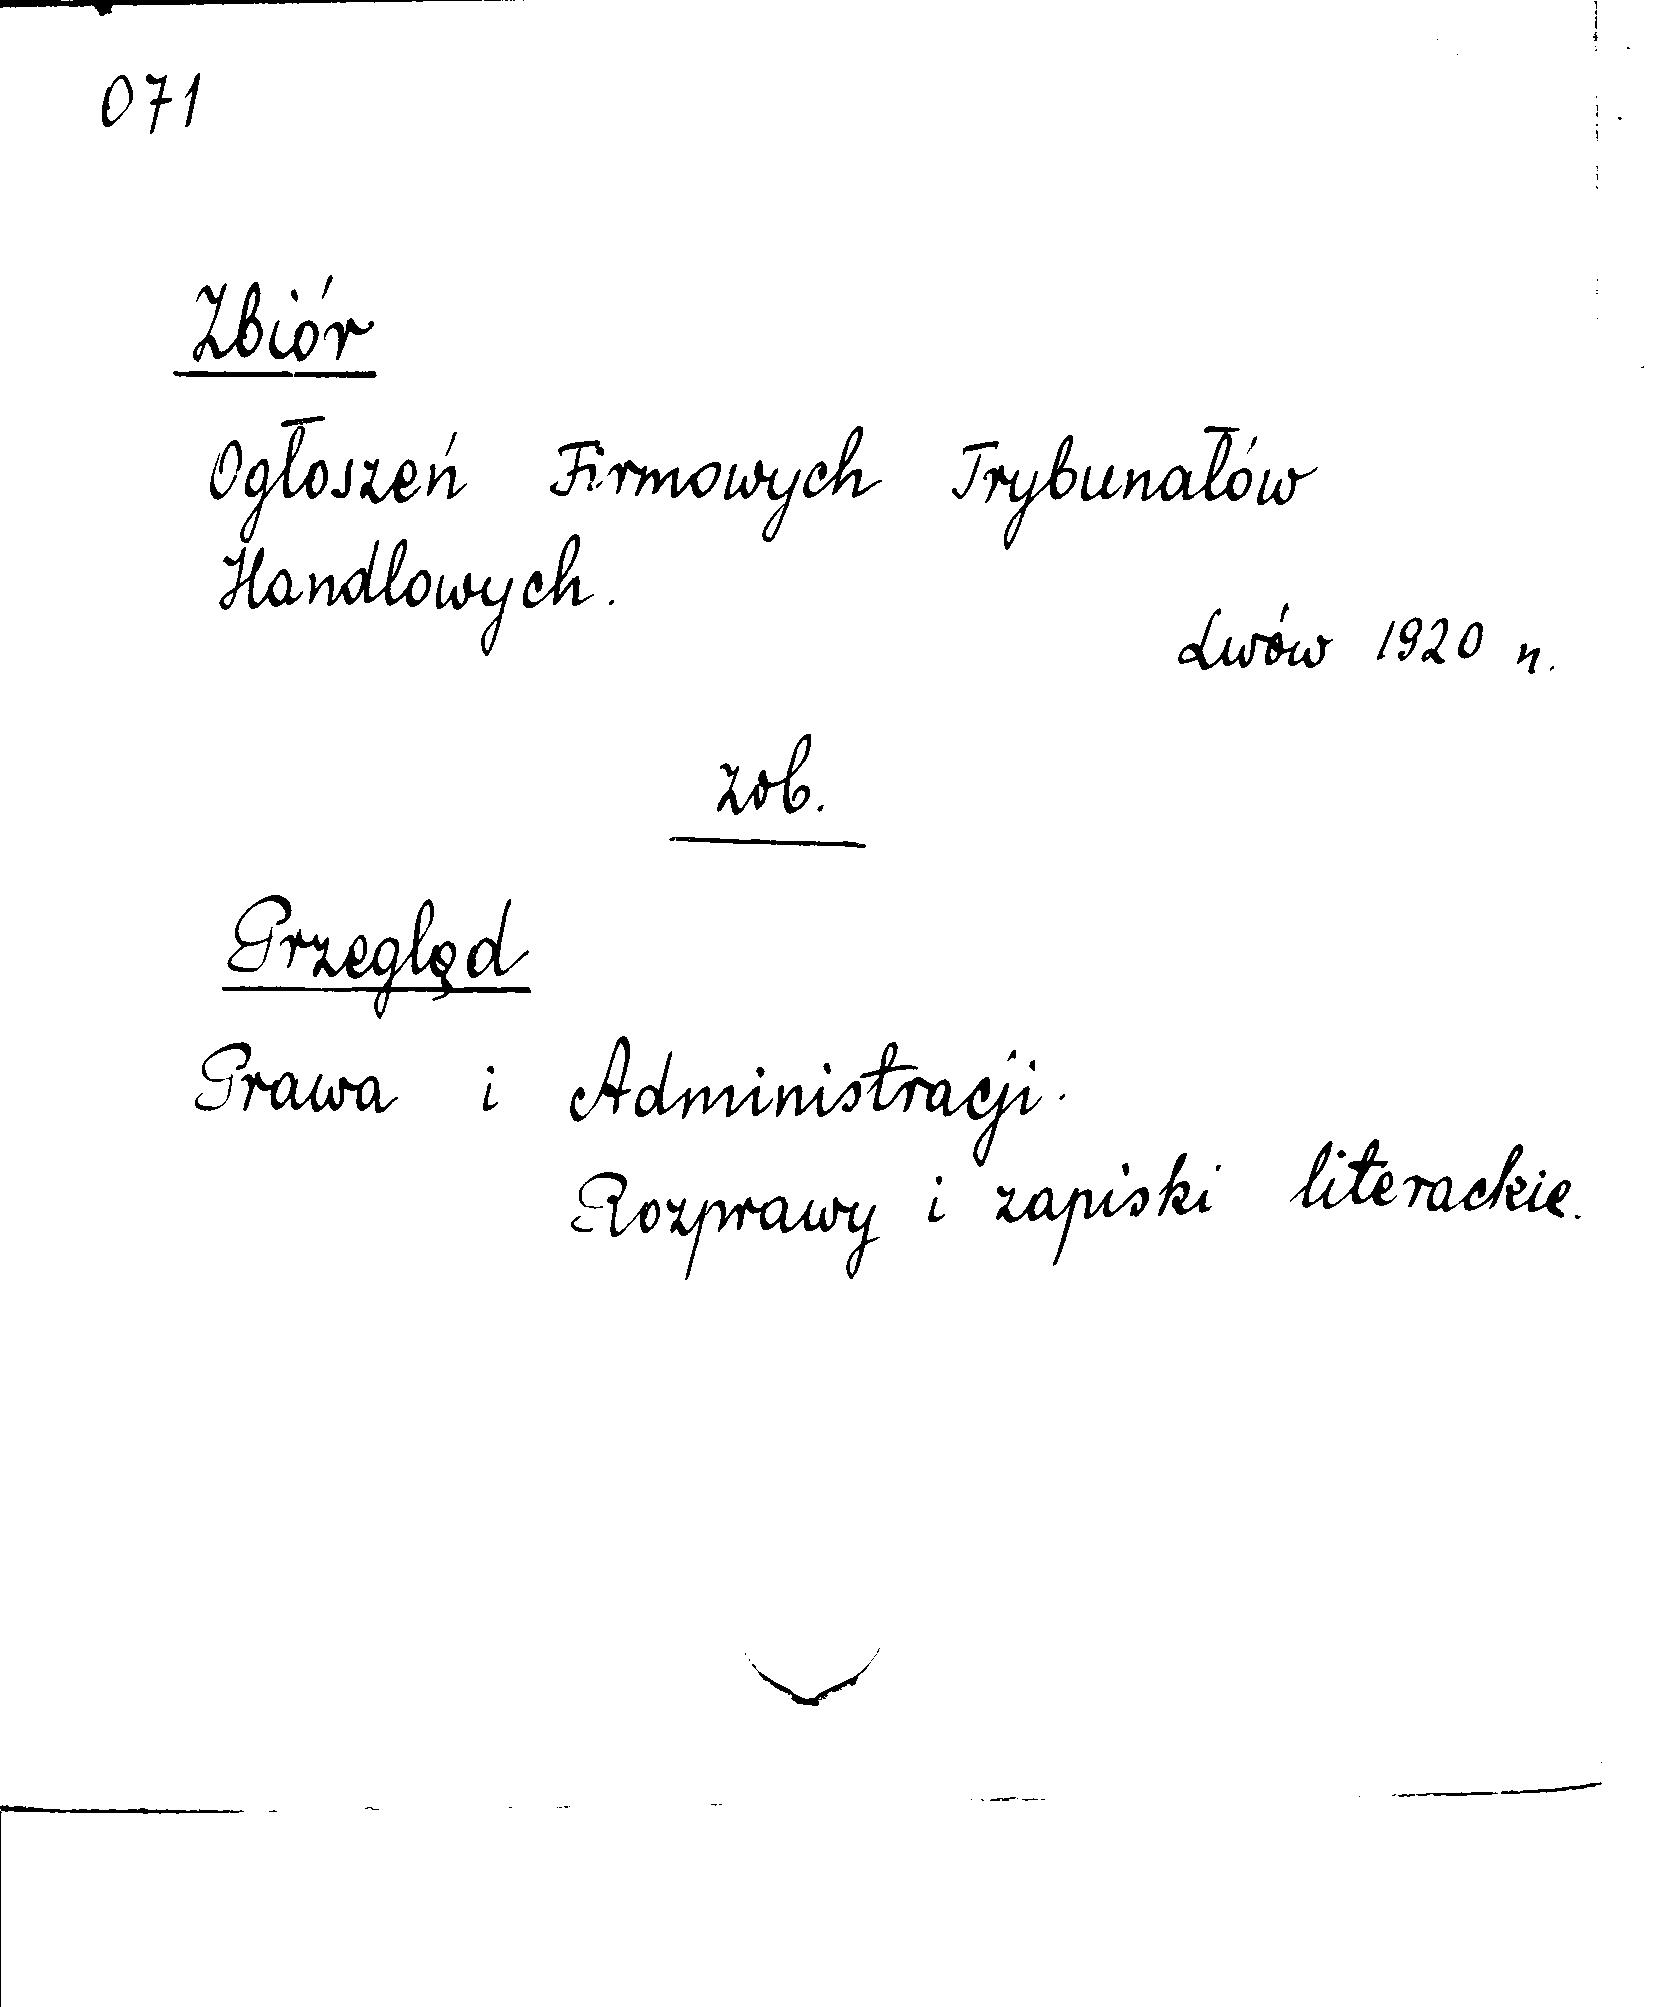 071
Zbiór
Ogłoszeń Firmowych Trybunałów
Handlowych.
Lwów 1920 n.
zob.
Przegląd
Prawa i Administracji.
Rozprawy i zapiski literackie.